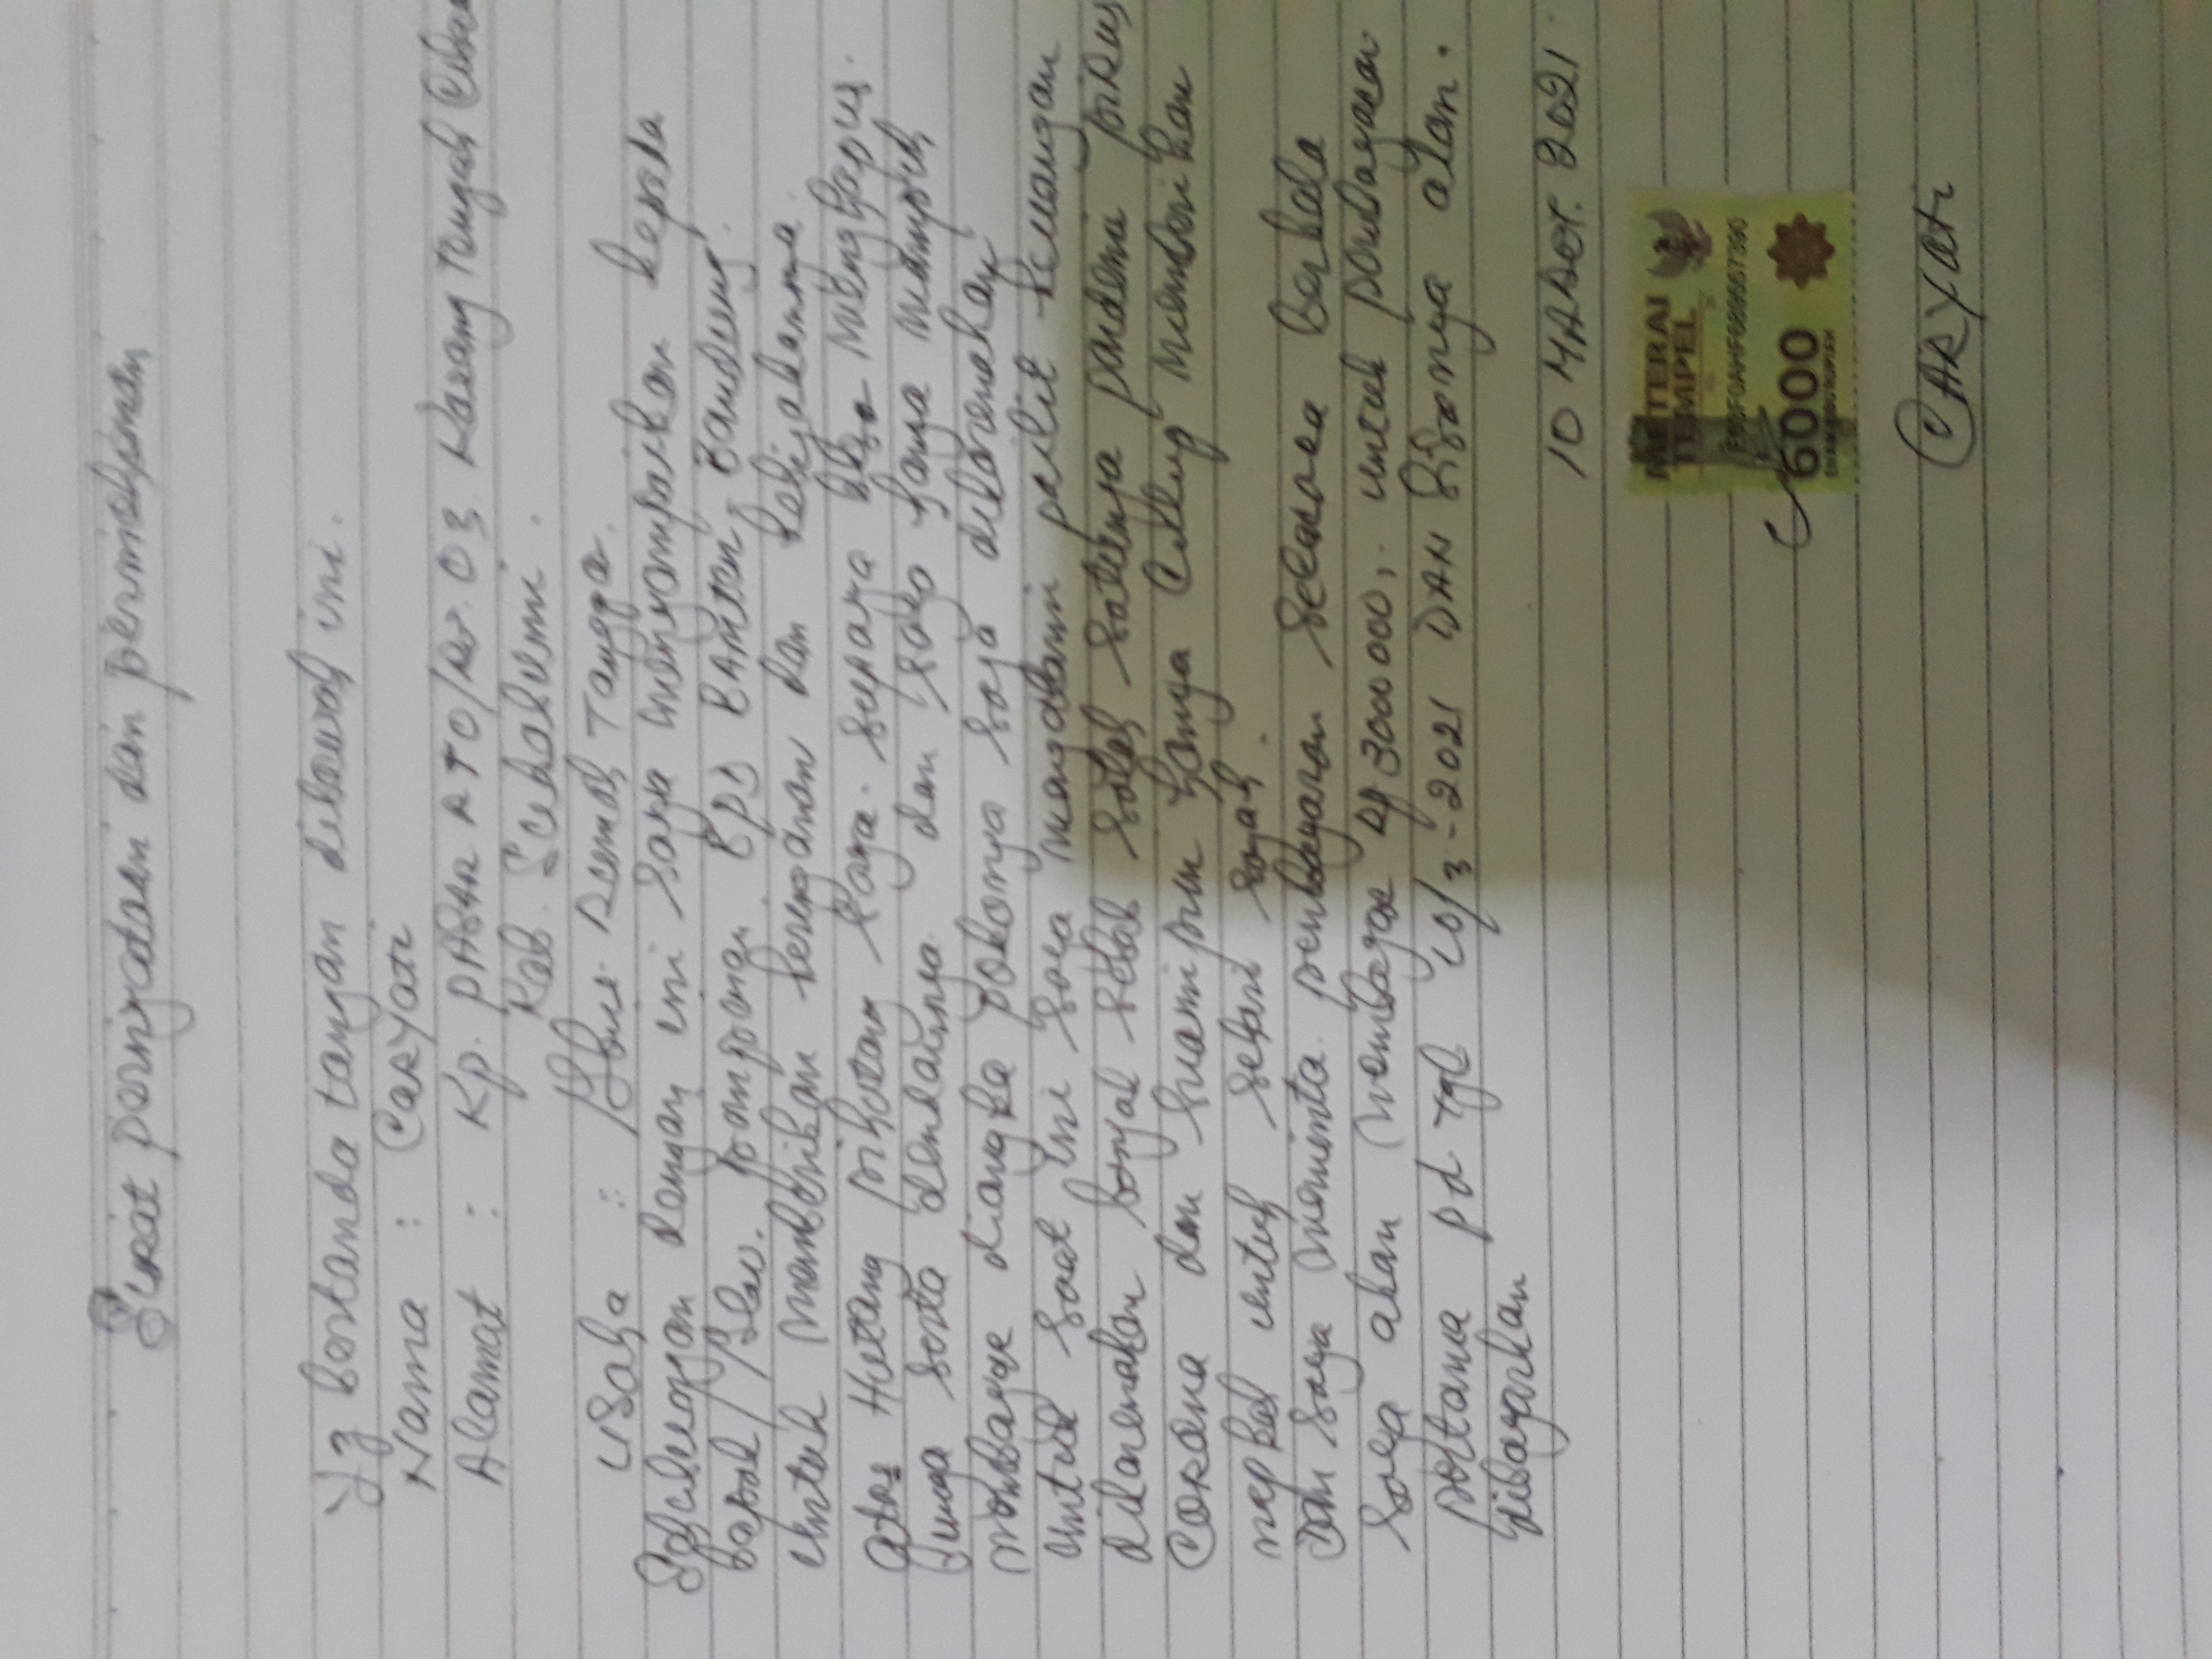 Surat pernyatan dan permohonan
Yg bertanda tangan dibawah ini.
Nama : Caryati
Alamat : Kp. PASAR RT0/RW.03. Karang Tengah Cibad
Kab. Sukabumi.
Usaha : Ibu Rumah Tangga.
Sehubungan dengan ini saya menyampaikan kepada
bapak/Ibu. pimpinan. BPJ BANTEN, Bandung.
untuk memberikan keringanan dan kebijakannya.
atas Hutang pihutang saya. supaya menghapus.
bunga serta dendanya. dan saya hanya mampuh
membayar diangka pokonya saja dikarenakan
untuk saat ini saya mengalami pailit keuangan
dikarenakan banyak sebab salah satunya pandemi pirus
corona dan suami pun hanya cukup memberikan
nepkah untuk sehari saja.
Dan saya meminta. pembayaran secara berkala
saya akan membayar Rp 3000 000,. untuk pembayaran
pertama pd tgl 10/3-2021 DAN sisanya akan.
dibayarkan
10 MARET. 2021.
METERAI
TEMPEL
6000
ENAM RIBU RUPIAH
CARYati